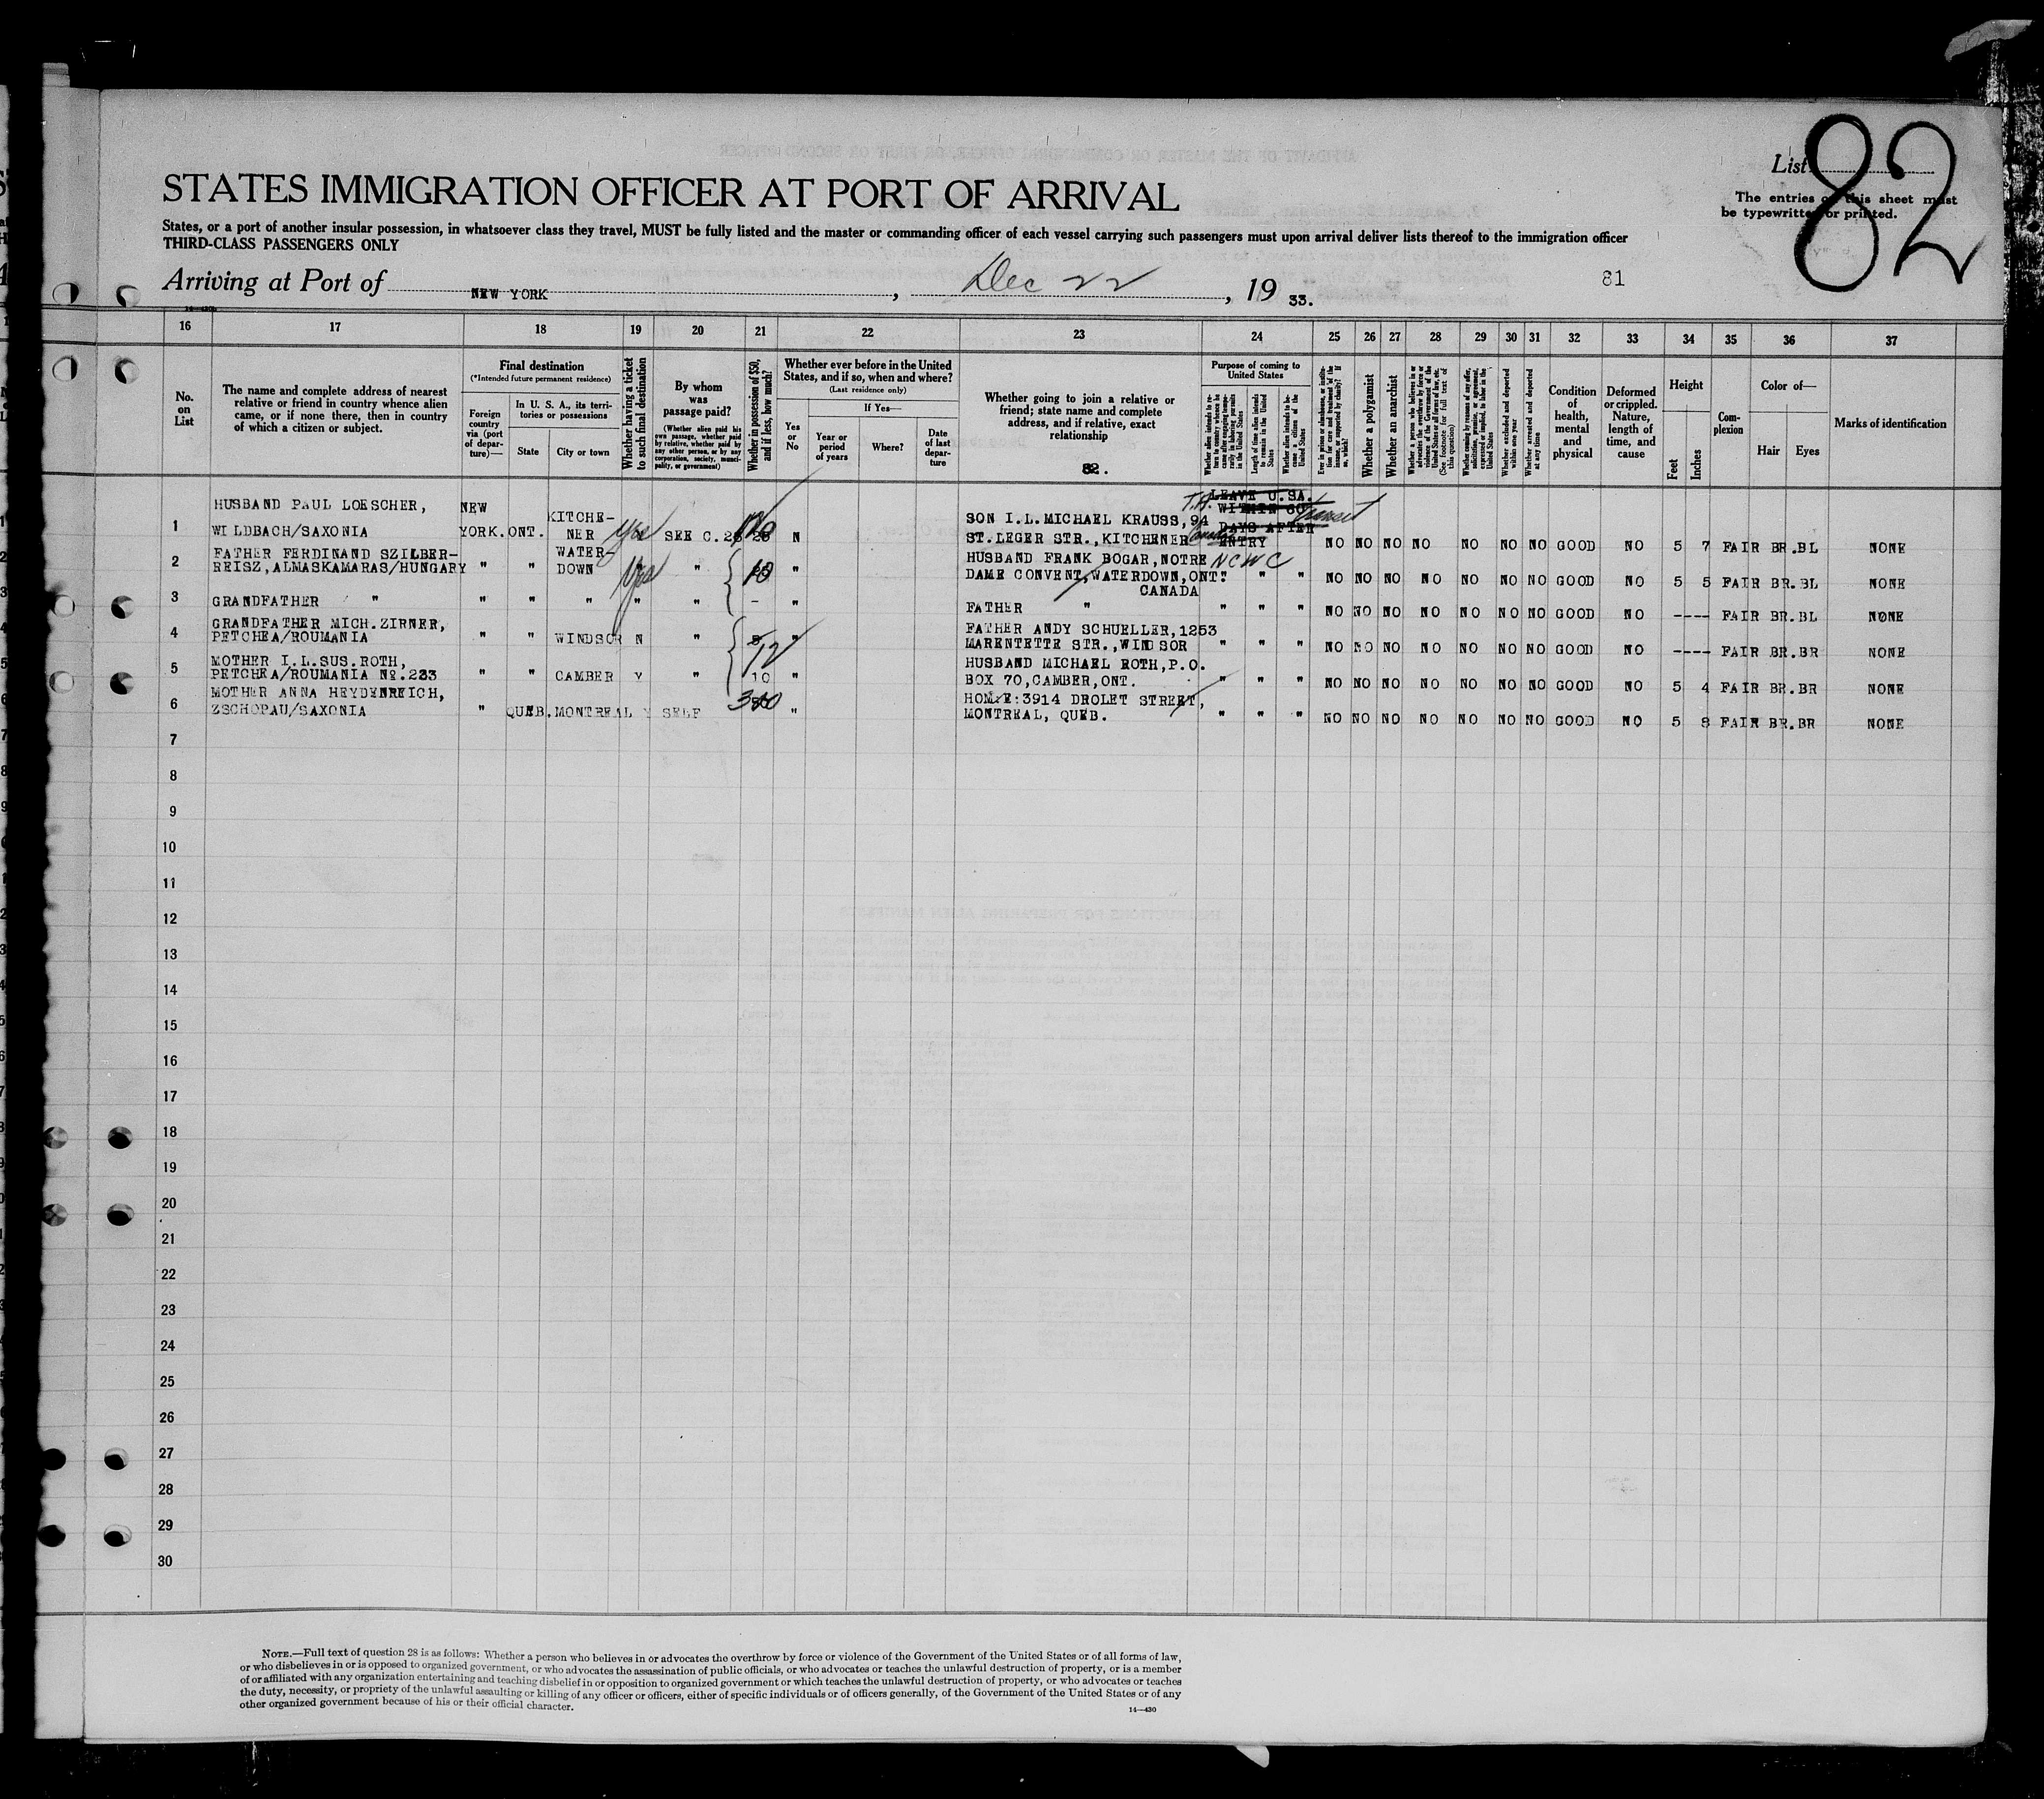 82
List
The entries on this sheet must
be typewritten or printed.
STATES IMMIGRATION OFFICER AT PORT OF ARRIVAL
States, or a port of another insular possession, in whatsoever class they travel, MUST be fully listed and the master or commanding officer of each vessel carrying such passengers must upon arrival deliver lists thereof to the immigration officer
THIRD-CLASS PASSENGERS ONLY
Arriving at Port of NEW YORK, Dec 22, 19 33.
81
16 17 18 19 20 21 22 23 24 25 26 27 28 29 30 31 32 33 34 35 36 37
No. on List
The name and complete address of nearest relative or friend in country whence alien came, or if none there, then in country of which a citizen or subject.
Final destination
(*Intended future permanent residence)
Foreign country via (port of departure)—
In U. S. A., its territories or possessions
State
City or town
Whether having a ticket to such final destination
By whom was passage paid?
(Whether alien paid his own passage, whether paid by relative, whether paid by any other person, or by any corporation, society, municipality, or government)
Whether in possession of $50, and if less, how much?
Whether ever before in the United States, and if so, when and where?
(Last residence only)
Yes or No
If Yes—
Year or period of years
Where?
Date of last departure
Whether going to join a relative or friend; state name and complete address, and if relative, exact relationship
82.
Purpose of coming to United States
Whether alien intends to return to country whence he came after engaging temporarily in laboring pursuits in the United States
Length of time alien intends to remain in the United States
Whether alien intends to become a citizen of the United States
Ever in prison or almshouse, or institution for care and treatment of the insane, or supported by charity? If so, which?
Whether a polygamist
Whether an anarchist
Whether a person who believes in or advocates the overthrow by force or violence of the Government of the United States or all forms of law, etc. (See footnote for full text of this question)
Whether coming by reasons of any offer, solicitation, promise, or agreement, expressed or implied, to labor in the United States
Whether excluded and deported within one year
Whether arrested and deported at any time
Condition of health, mental and physical
Deformed or crippled. Nature, length of time, and cause
Height
Feet
Inches
Complexion
Color of—
Hair
Eyes
Marks of identification
1 HUSBAND PAUL LOESCHER, WILDBACH/SAXONIA NEW YORK. ONT. KITCHENER Yes SEE C.23 N SON I.L.MICHAEL KRAUSS,94 ST.LEGER STR.,KITCHENER LEAVE U.SA. WITHIN 60 DAYS AFTER ENTRY Transit NO NO NO NO NO NO NO GOOD NO 5 7 FAIR BR.BL NONE
2 FATHER FERDINAND SZILBERREISZ,ALMASKAMARAS/HUNGARY " " WATERDOWN Yes " 10 " HUSBAND FRANK BOGAR,NOTRE DAME CONVENT,WATERDOWN,ONT. CANADA NCWC " " " NO NO NO NO NO NO NO GOOD NO 5 5 FAIR BR.BL NONE
3 GRANDFATHER " " " " " " - " FATHER " " " " NO NO NO NO NO NO NO GOOD NO ---- FAIR BR.BL NONE
4 GRANDFATHER MICH.ZIRNER, PETCHEA/ROUMANIA " " WINDSOR N " 12 " FATHER ANDY SCHUELLER,1253 MARENTETTE STR.,WINDSOR " " " NO NO NO NO NO NO NO GOOD NO ---- FAIR BR.BR NONE
5 MOTHER I.L.SUS.ROTH, PETCHEA/ROUMANIA No.233 " " CAMBER Y " 10 " HUSBAND MICHAEL ROTH,P.O. BOX 70,CAMBER,ONT. " " " NO NO NO NO NO NO NO GOOD NO 5 4 FAIR BR.BR NONE
6 MOTHER ANNA HEYDENREICH, ZSCHOPAU/SAXONIA " QUEB. MONTREAL Y SELF " HOME:3914 DROLET STREET, MONTREAL, QUEB. " " " NO NO NO NO NO NO NO GOOD NO 5 8 FAIR BR.BR NONE
7
8
9
10
11
12
13
14
15
16
17
18
19
20
21
22
23
24
25
26
27
28
29
30
NOTE.—Full text of question 28 is as follows: Whether a person who believes in or advocates the overthrow by force or violence of the Government of the United States or of all forms of law,
or who disbelieves in or is opposed to organized government, or who advocates the assassination of public officials, or who advocates or teaches the unlawful destruction of property, or is a member
of or affiliated with any organization entertaining and teaching disbelief in or opposition to organized government or which teaches the unlawful destruction of property, or who advocates or teaches
the duty, necessity, or propriety of the unlawful assaulting or killing of any officer or officers, either of specific individuals or of officers generally, of the Government of the United States or of any
other organized government because of his or their official character.
14—430